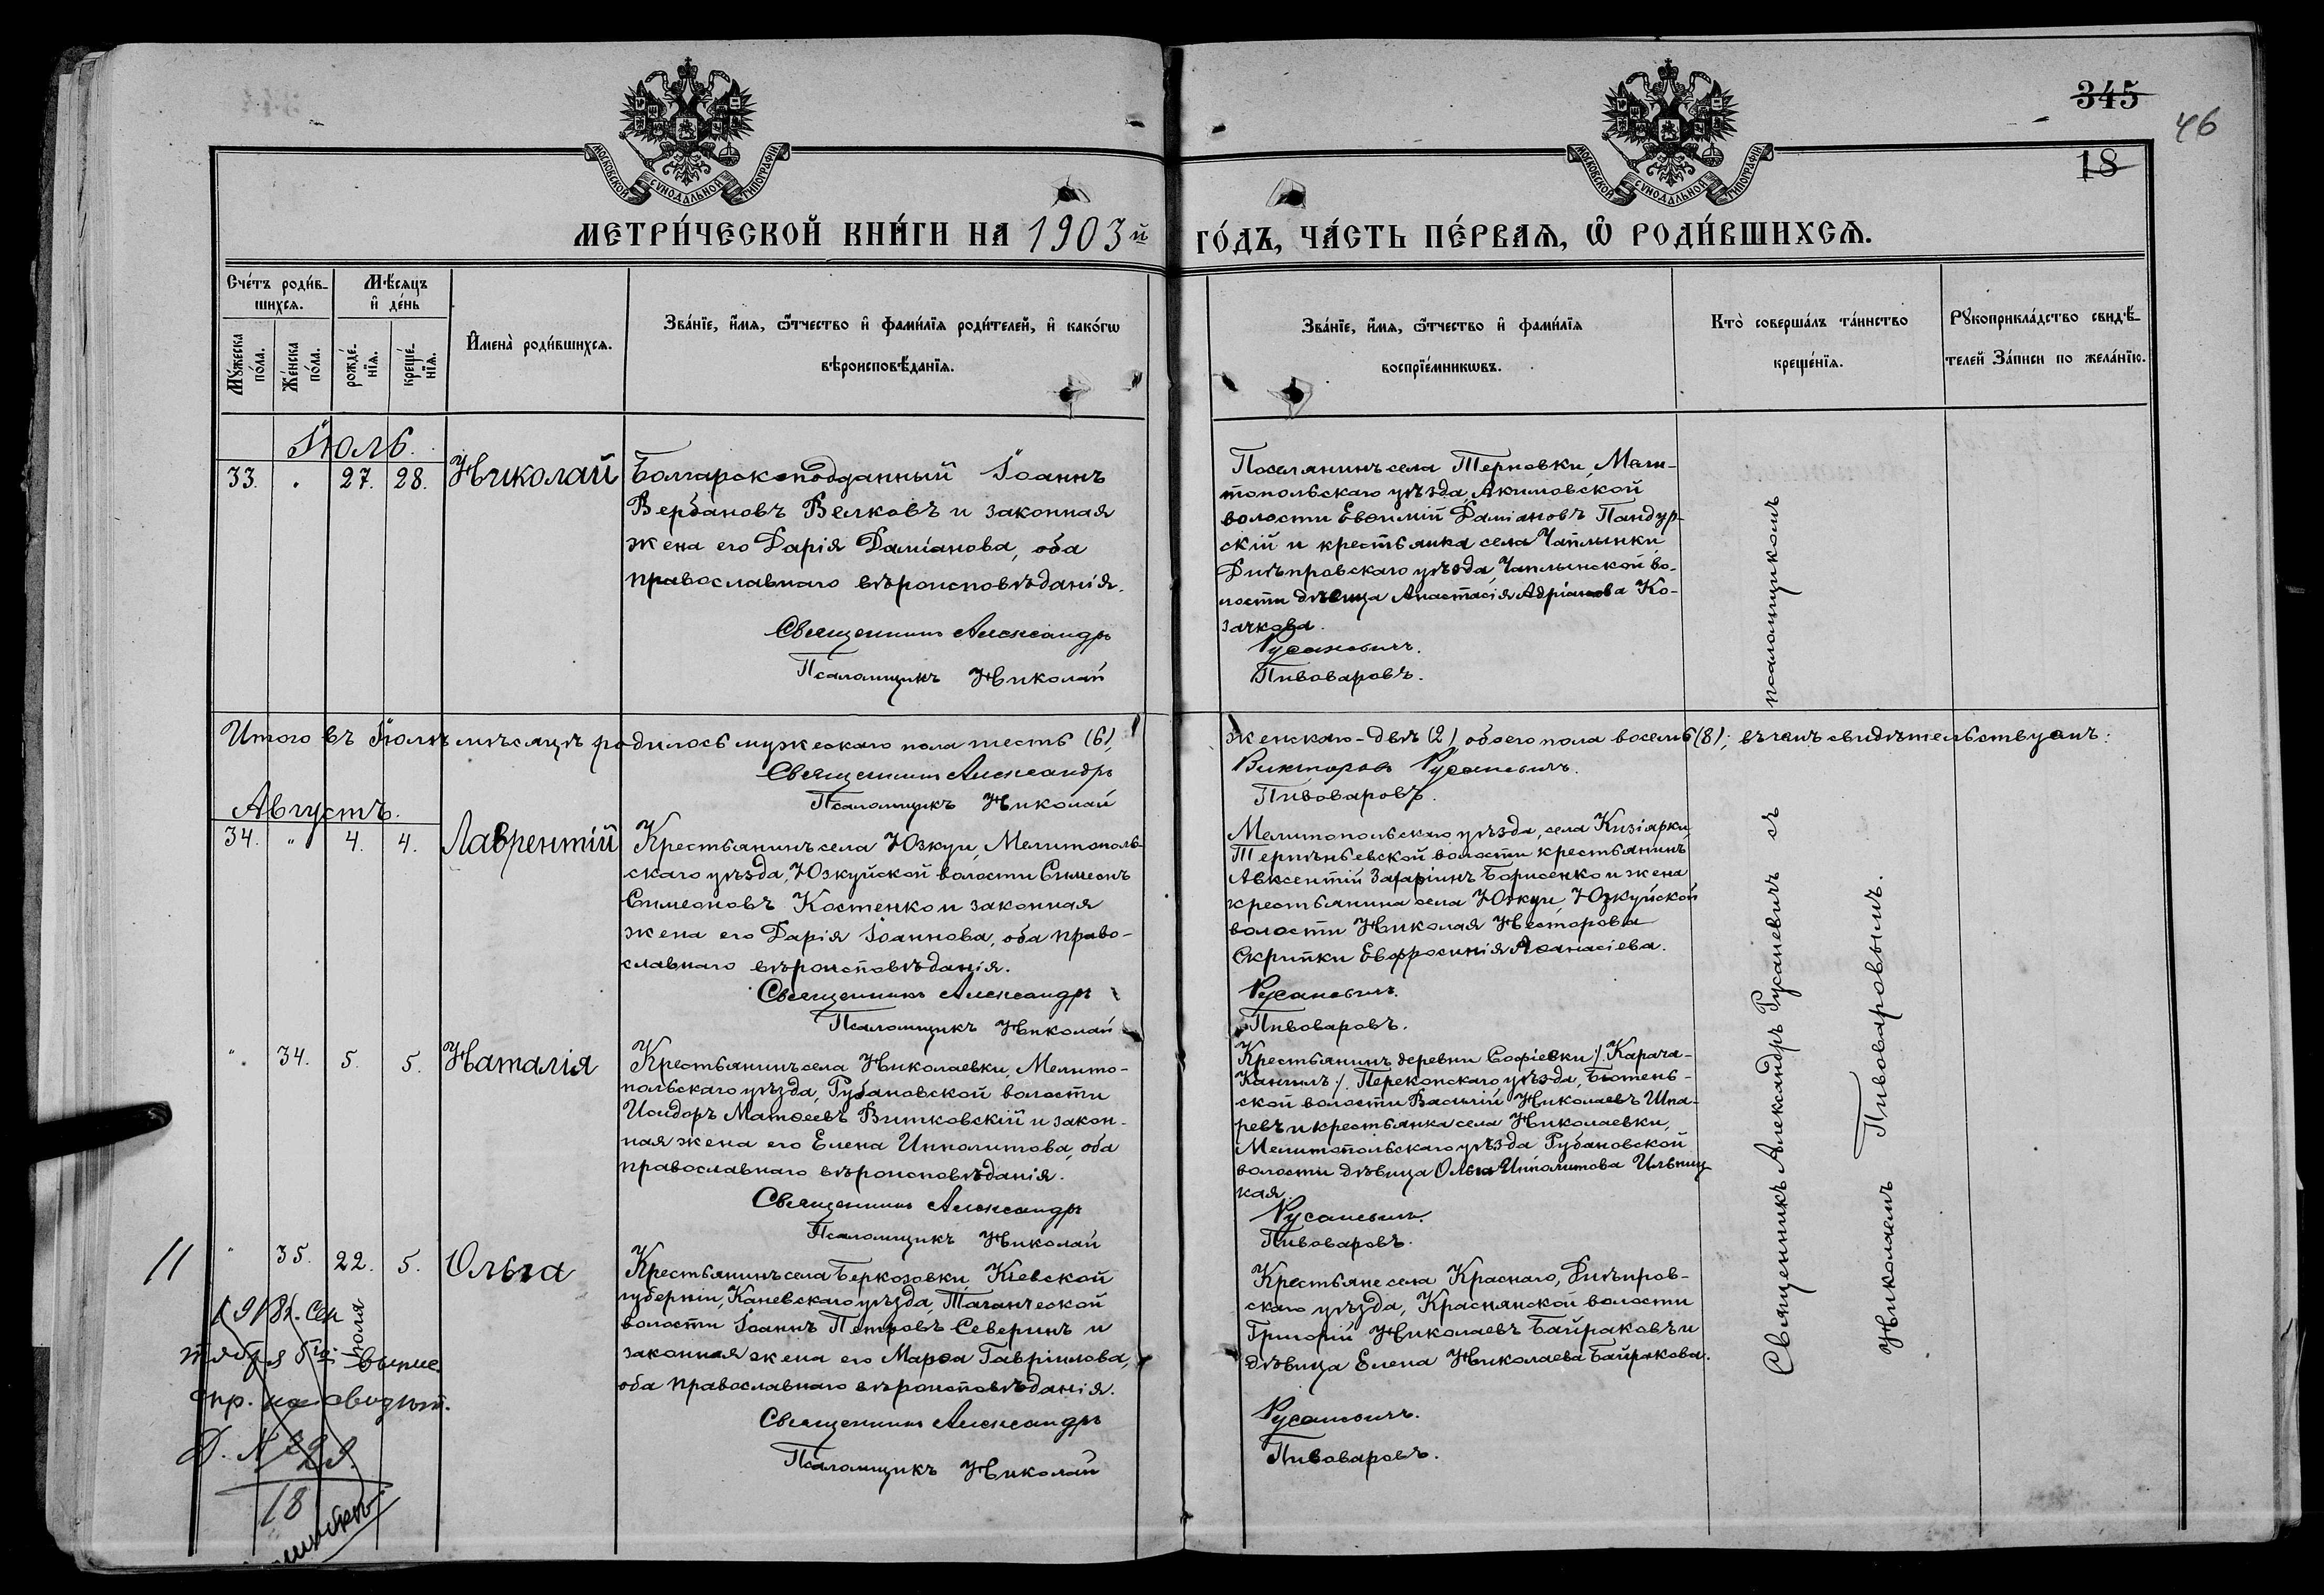 345
46
18
МОСКОВСКОЙ СѴНОДАЛЬНОЙ ТИПОГРАФІИ
МОСКОВСКОЙ СѴНОДАЛЬНОЙ ТИПОГРАФІИ
МЕТРИ́ЧЕСКОЙ КНИ́ГИ НА 1903й
ГО́ДЪ, ЧА́СТЬ ПЕ́РВАѦ, Ѡ҆ РОДИ́ВШИХСѦ.
Сче́тъ роди́в-
шихсѧ.
Мѣ́сѧцъ
и҆ де́нь
Мꙋ́жеска
по́ла.
Же́нска
по́ла.
рожде́-
нїѧ.
креще́-
нїѧ.
И҆мена̀ роди́вшихсѧ.
Зва́нїе, и҆́мѧ, ѻ҆́тчество и҆ фами́лїѧ роди́телей, и҆ како́гѡ
вѣроисповѣ́данїѧ.
Зва́нїе, и҆́мѧ, ѻ҆́тчество и҆ фами́лїѧ
воспрїе́мникѡвъ.
Кто̀ соверша́лъ та́инство
креще́нїѧ.
Рꙋкоприкла́дство свидѣ́-
телей За́писи по жела́нїю.
Іюль.
33. 27. 28. Николай
Болгарскоподданный Іоаннъ
Вербановъ Велковъ и законная
жена его Дарія Даміанова, оба
православнаго вѣроисповѣданія.
Священникъ Александръ
Псаломщикъ Николай
Поселянинъ села Терновки, Мели-
топольскаго уѣзда, Акимовской
волости Евѳимій Даміановъ Пандур-
скій и крестьянка села Чаплынки
Днѣпровскаго уѣзда, Чаплынской во-
лости дѣвица Анастасія Адріанова Ко-
зачкова.
Русаневичъ.
Пивоваровъ.
Итого въ Іюлѣ мѣсяцѣ родилось мужескаго пола шесть (6),
женскаго-двѣ (2), обоего пола восемь (8); въ чемъ свидѣтельствуемъ:
Священникъ Александръ
Викторовъ Русаневичъ.
Псаломщикъ Николай
Пивоваровъ.
Августъ.
34. " 4. 4. Лаврентій
Крестьянинъ села Юзкуи, Мелитополь-
скаго уѣзда, Юзкуйской волости Симеонъ
Симеоновъ Костенко и законная
жена его Дарія Іоаннова, оба право-
славнаго вѣроисповѣданія.
Священникъ Александръ
Псаломщикъ Николай
Мелитопольскаго уѣзда, села Кизіярки
Терпѣньевской волости крестьянинъ
Авксентій Захаріинъ Борисенко и жена
крестьянина села Юзкуи Юзкуйской
волости Николая Несторова
Скрипки Евфросинія Аѳанасіева.
Русаневичъ.
Пивоваровъ.
" 34. 5. 5. Наталія
Крестьянинъ села Николаевки, Мелито-
польскаго уѣзда, Рубановской волости
Исидоръ Матѳеевъ Витковскій и закон-
ная жена его Елена Ипполитова, оба
православнаго вѣроисповѣданія.
Священникъ Александръ
Псаломщикъ Николай
Крестьянинъ деревни Софіевки /: Карача-
Кангилъ :/ Перекопскаго уѣзда, Бютень-
ской волости Василій Николаевъ Шпа-
ревъ и крестьянка села Николаевки,
Мелитопольскаго уѣзда Рубановской
волости дѣвица Ольга Ипполитова Ильниц-
кая.
Русаневичъ.
Пивоваровъ.
" 35. 22. 5. Ольга
Іюля
Крестьянинъ села Беркозовки Кіевской
губерніи, Каневскаго уѣзда, Таганческой
волости Іоаннъ Петровъ Северинъ и
законная жена его Марѳа Гавріилова,
оба православнаго вѣроисповѣданія.
Священникъ Александръ
Псаломщикъ Николай
Крестьяне села Краснаго, Днѣпров-
скаго уѣзда, Краснянской волости
Григорій Николаевъ Байраковъ и
дѣвица Елена Николаева Байракова.
Русаневичъ.
Пивоваровъ.
Священникъ Александръ Русаневичъ съ псаломщикомъ
Николаемъ Пивоваровымъ.